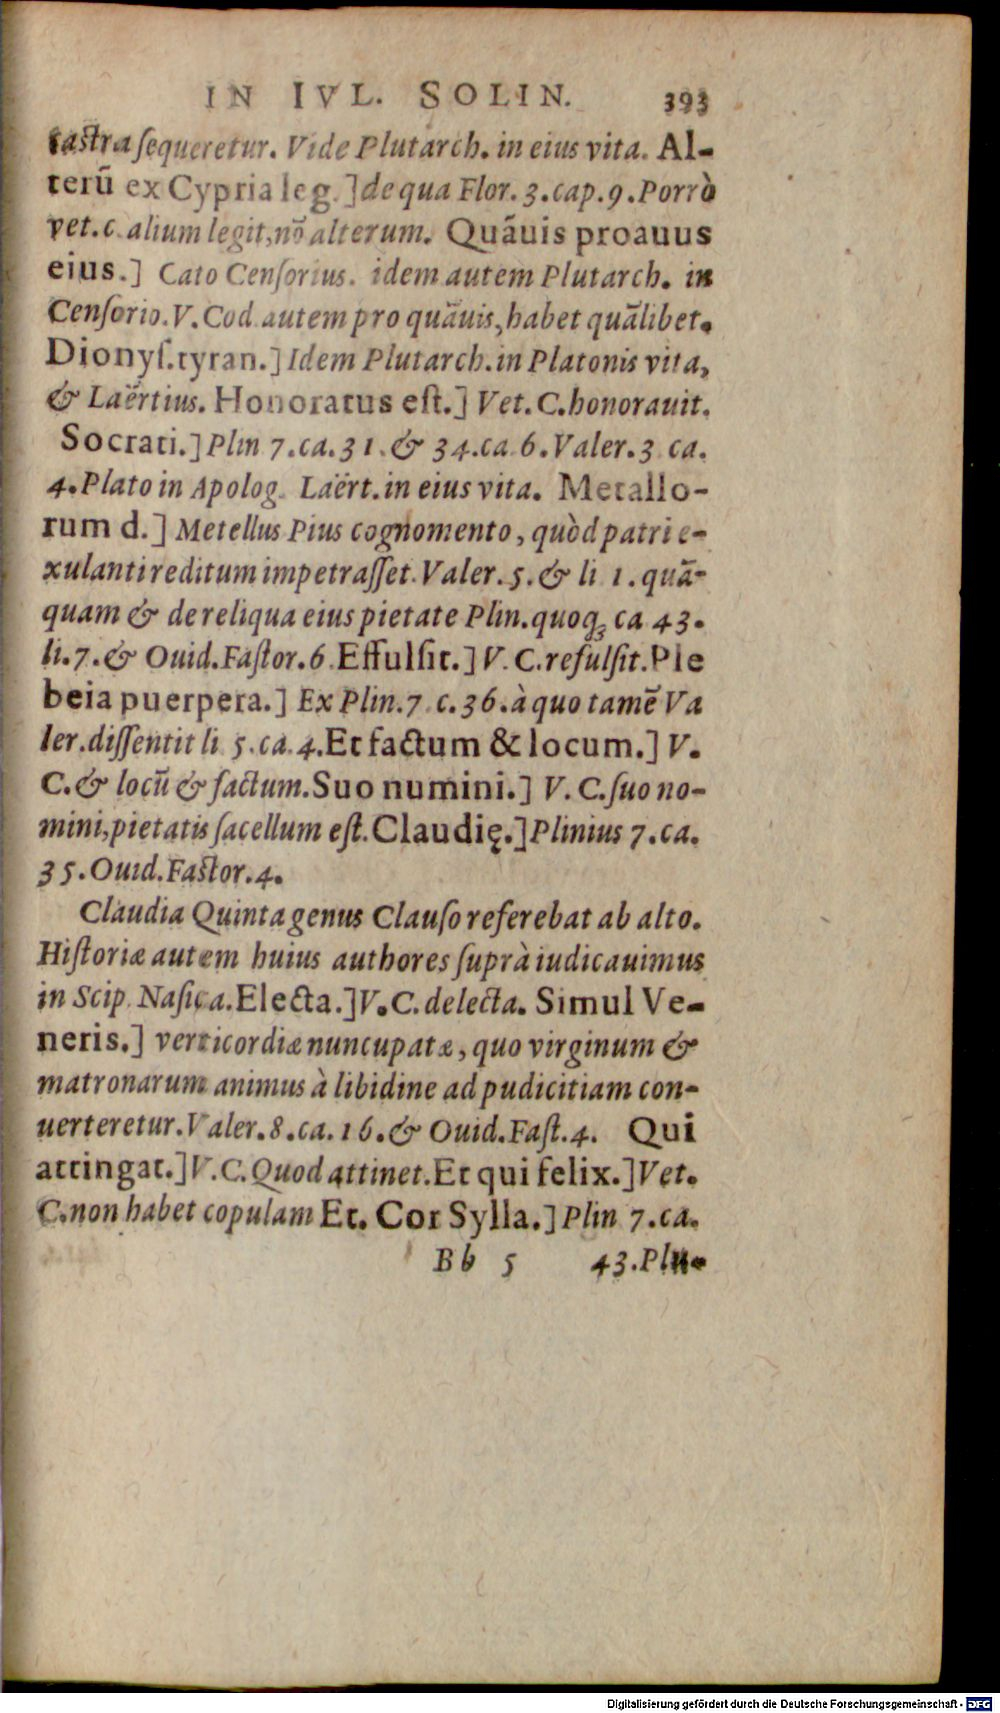 IN IVL. SOLIN. 393
castra ſequeretur. Vide Plutarch. in eius vita. Al-
terũ ex Cypria leg.] de qua Flor. 3. cap. 9. Porrò
vet. c. alium legit, nõ alterum. Quãuis proauus
eius.] Cato Cenſorius. idem autem Plutarch. in
Cenſorio. V. Cod. autem pro quãuis, habet quãlibet.
Dionyſ. tyran.] Idem Plutarch. in Platonis vita,
& Laërtius. Honoratus eſt.] Vet. C. honorauit.
Socrati.] Plin 7. ca. 31. & 34. ca. 6. Valer. 3 ca.
4. Plato in Apolog. Laërt. in eius vita. Metallo-
rum d.] Metellus Pius cognomento, quòd patri e-
xulanti reditum impetraſſet. Valer. 5. & li 1. quã-
quam & de reliqua eius pietate Plin. quoqꝫ ca 43.
li. 7. & Ouid. Faſtor. 6. Effulſit.] V. C. refulſit. Ple
beia puerpera.] Ex Plin. 7. c. 36. à quo tamẽ Va
ler. diſſentit li 5. ca. 4. Et factum & locum.] V.
C. & locũ & factum. Suo numini.] V. C. ſuo no-
mini, pietatis ſacellum eſt. Claudię.] Plinius 7. ca.
35. Ouid. Faſtor. 4.
Claudia Quinta genus Clauſo referebat ab alto.
Hiſtoriæ autem huius authores ſuprà iudicauimus
in Scip. Naſica. Electa.] V. C. delecta. Simul Ve-
neris.] verticordiæ nuncupatæ, quo virginum &
matronarum animus à libidine ad pudicitiam con-
uerteretur. Valer. 8. ca. 16. & Ouid. Faſt. 4. Qui
attingat.] V. C. Quod attinet. Et qui felix.] Vet.
C. non habet copulam Et. Cor Sylla.] Plin 7. ca.
Bb 5 43. Plu-
Digitalisierung gefördert durch die Deutsche Forschungsgemeinschaft - DFG